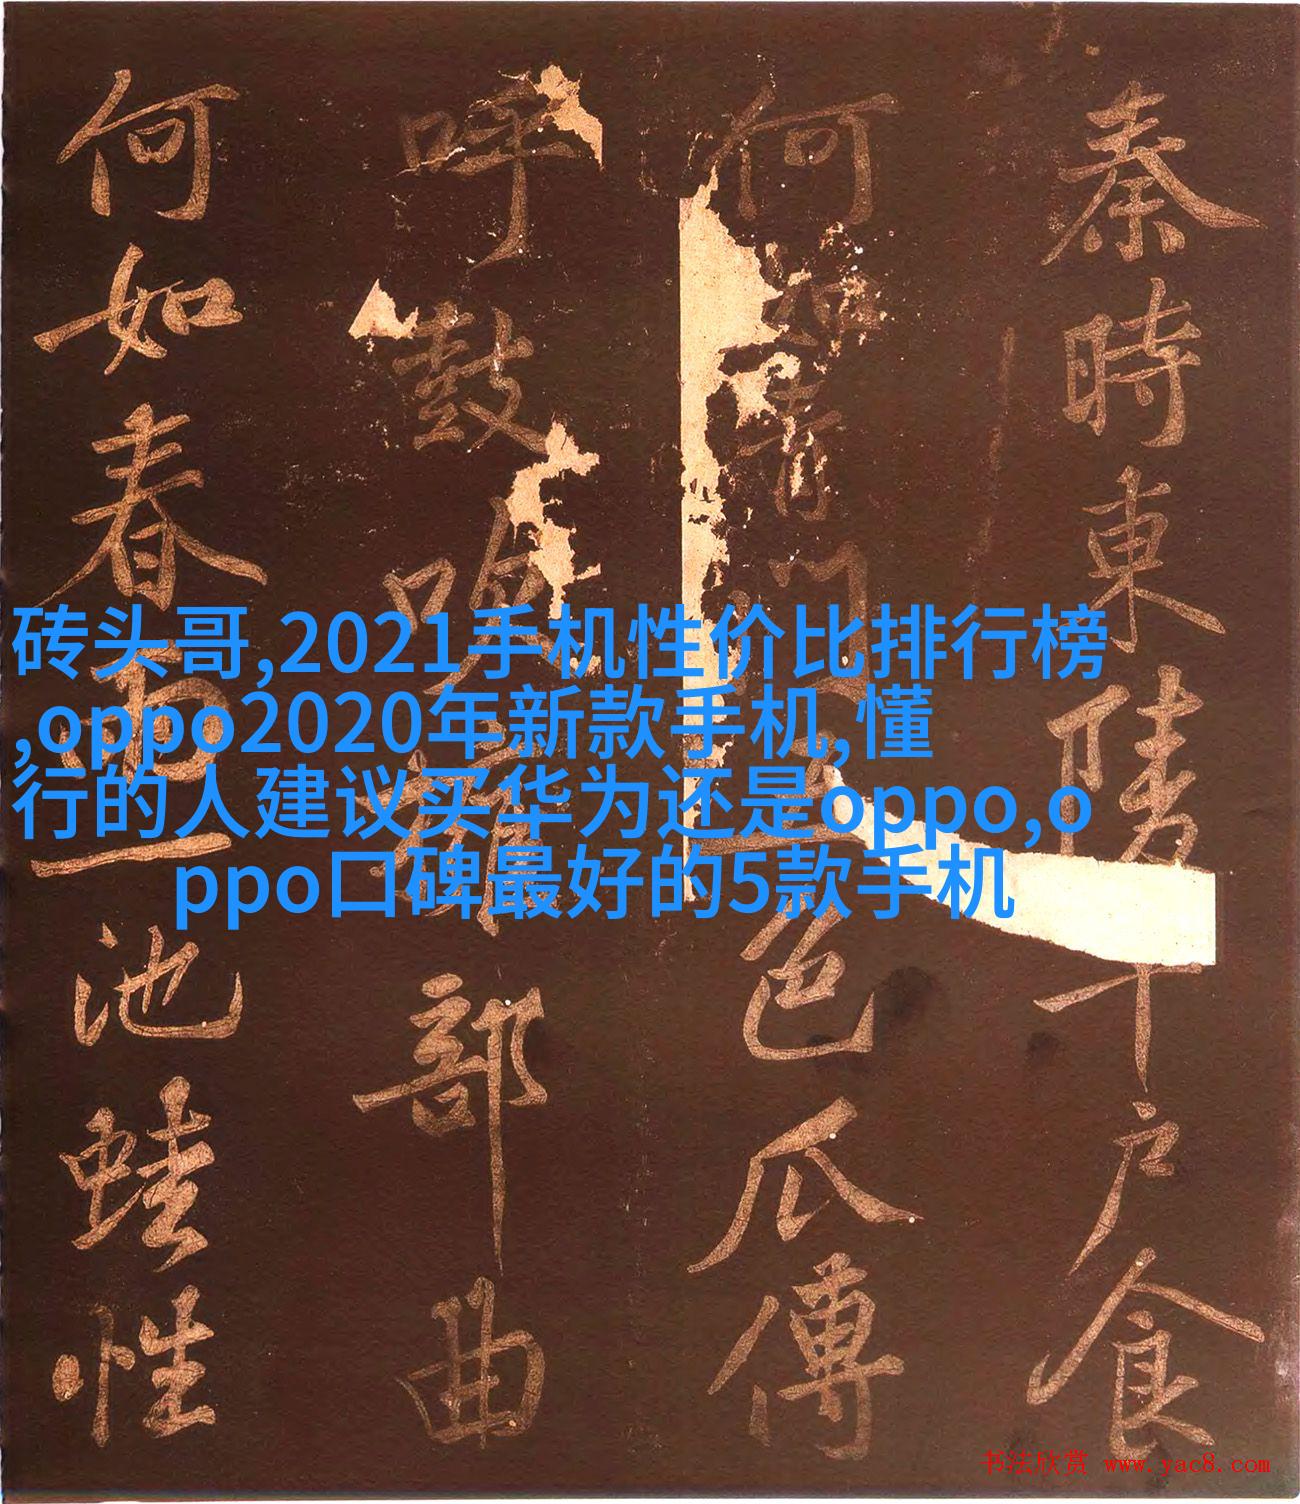 秦時東陵千戶食
何如青門五色瓜傳
呼鼓吹雜部曲
何如春雨一池蛙性
砖头哥,2021手机性价比排行榜
,oppo2020年新款手机,懂
行的人建议买华为还是oppo,o
ppo口碑最好的5款手机
书法欣赏 www.yac8.com